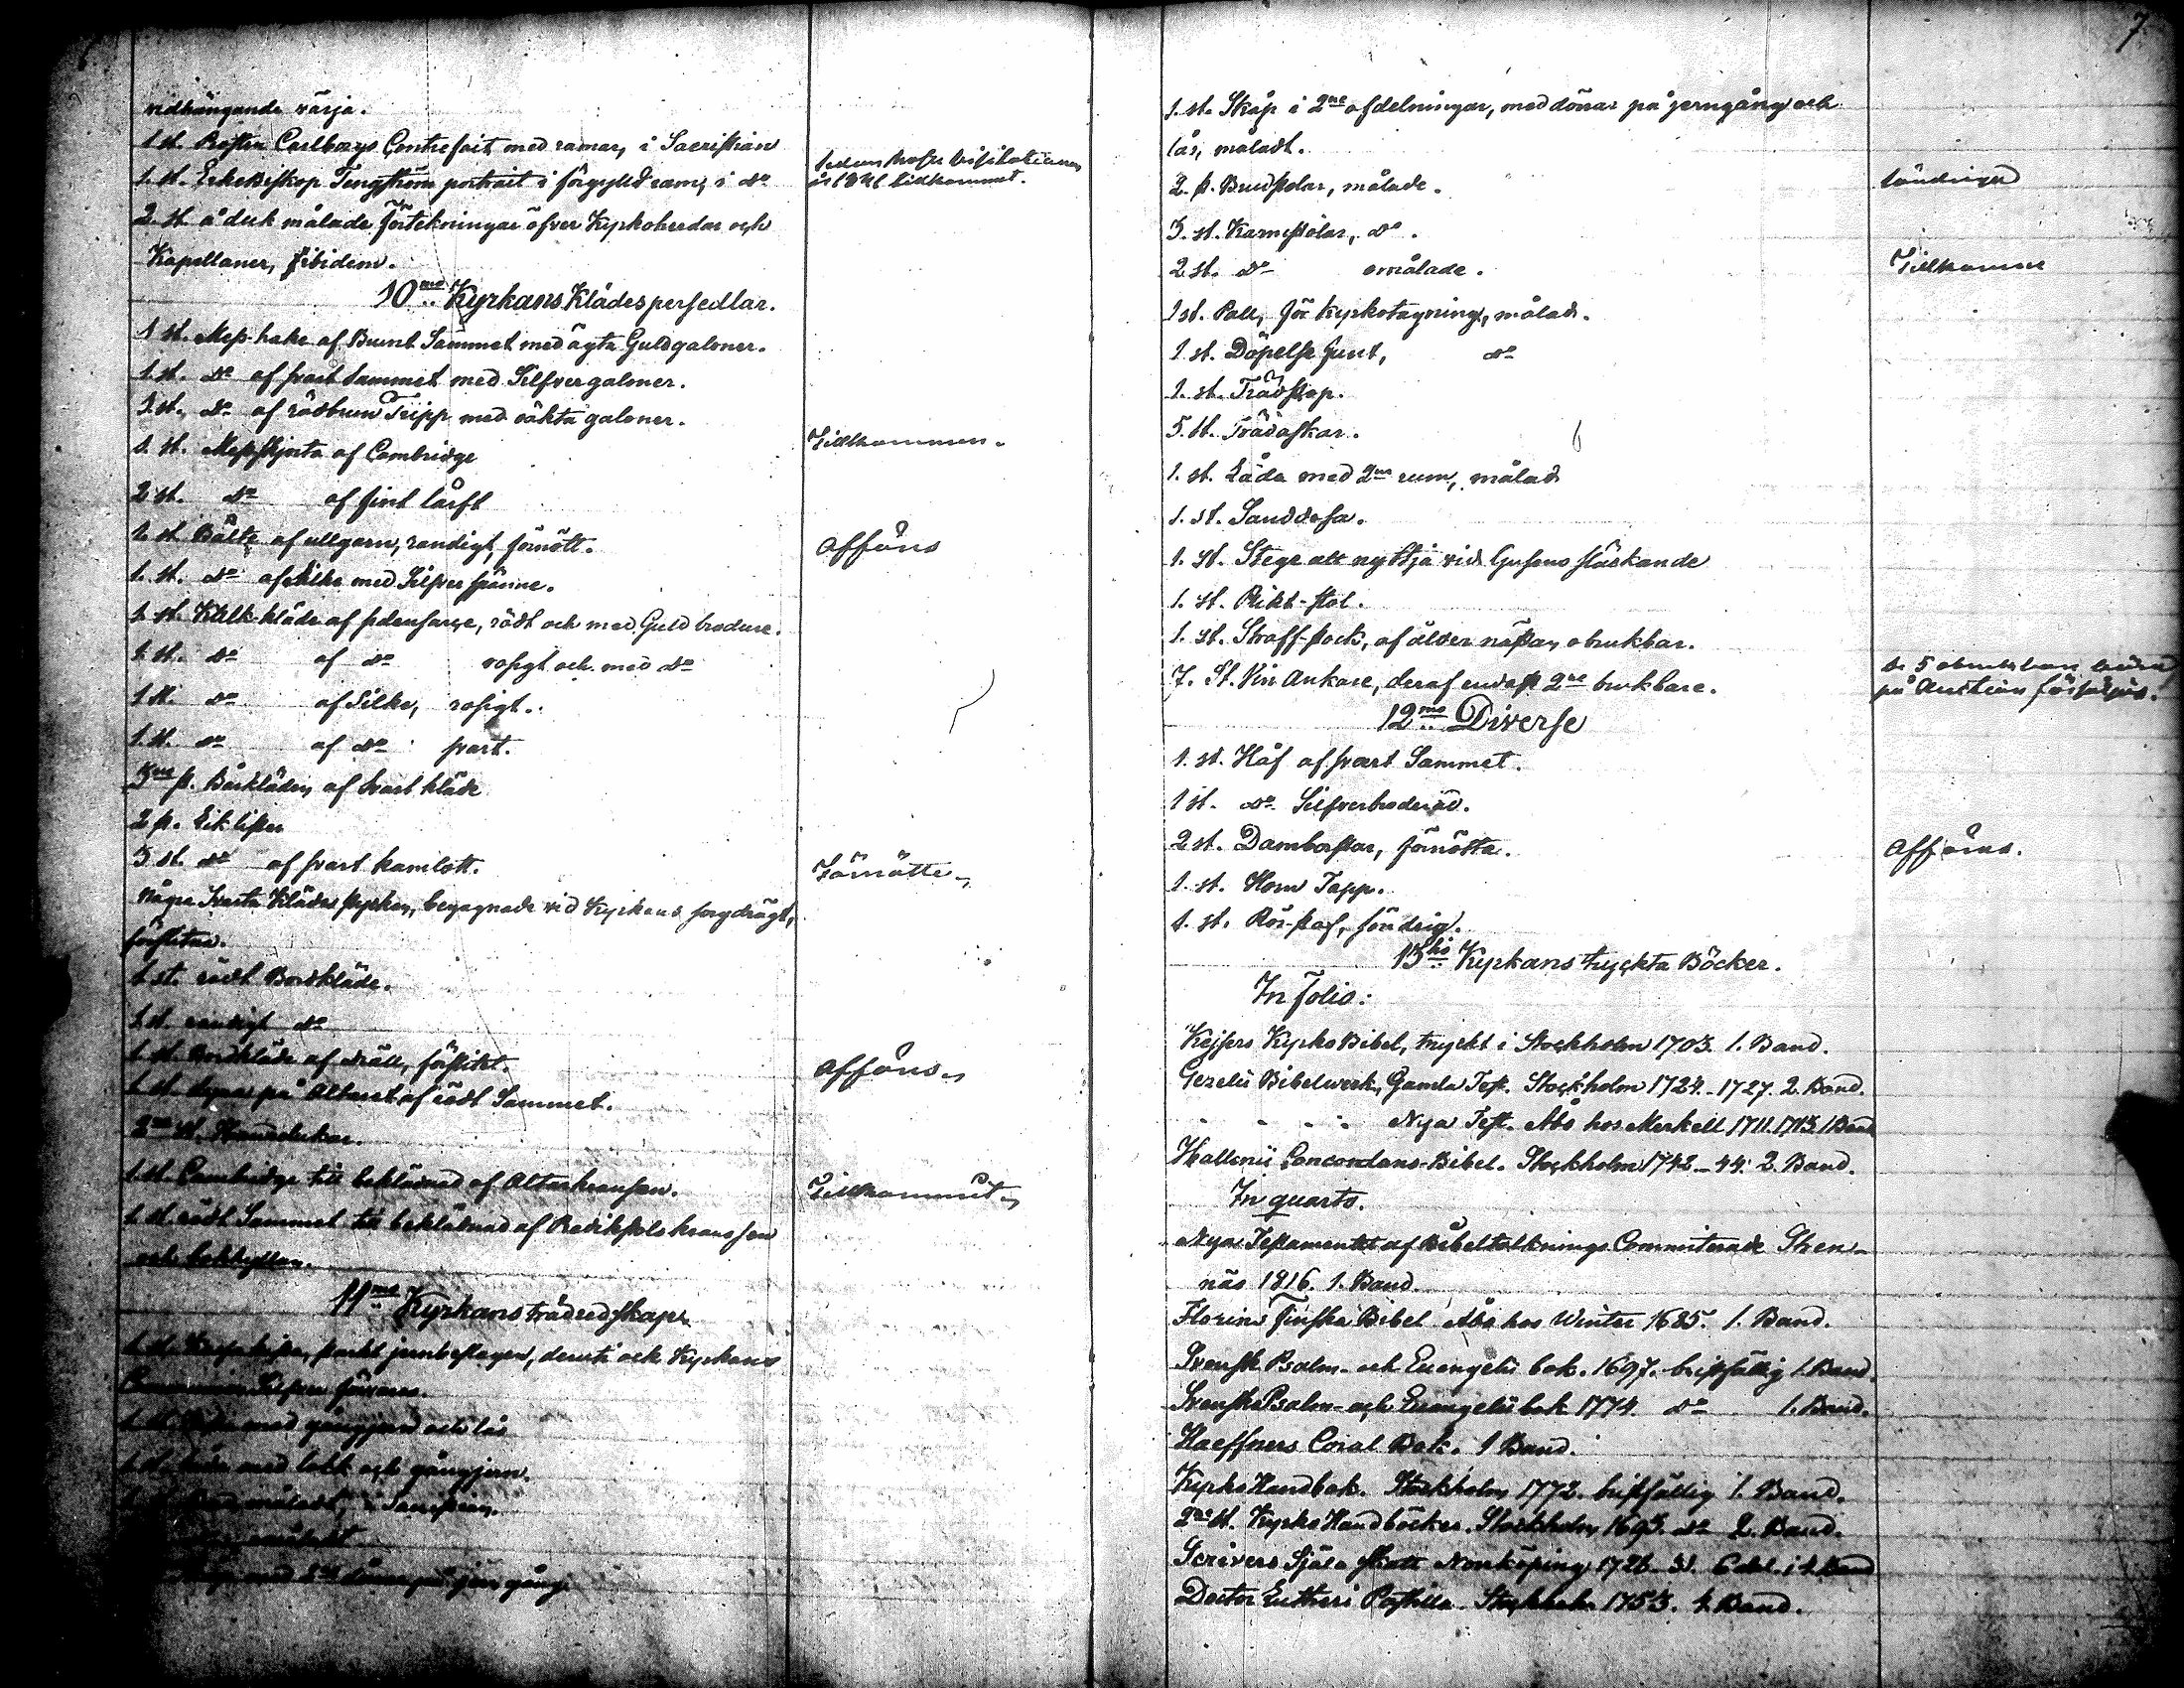 7
vidhängande värja.
1 st. Rosten Carlborgs Contrefait med ramar, i Sacristian
1. st. ErkeBiskop Tengström portrait i förgyld ram, i do
sedan visitationen
år tillkommet.
2. st. å duk målade förtekningar öfver Kyrkoherdar och
Kapellaner, ibidem.
10mo Kyrkans Klädespersedlar.
1 st. Mess-hake af Brunt Sammet med ägta Guldgaloner.
1. st. do af svart sammet med Silfvergaloner.
1 st. do af rödbrun Tripp med oäkta galoner.
1 st. Messskjorta af Cambridge
Tillkommen.
2 st. do af fint lärft
1. st. Bälte af ullgarn, randigt, förnött.
Afföres
1. st. do af silke med Silfver spänne.
1 st. Kalk-kläde af sidensarge, rödt och med Guld brodure.
1 st. do af do rosigt och med do
1 st. do af Silke, rosigt.
1. st. do af do svart.
3ne st. Bårkläden, af svart kläde
2 st. Lik
3 st. do af svart kamlott.
Förnötte
Några Svarta Klädes stycken, begagnade vid Kyrkans sorgdrägt,
förslitna.
1 st. rödt Bordkläde.
1 st. randigt do
1 st. Bordkläde af dräll, förslitet.
Afföres
1. st. dyna på Altaret af rödt Sammet.
2ne st. Handdukar.
1. st. Cambridge till beklädnad af Altarkransen.
Tillkommit
1. st. rödt Sammet till beklädnad af Predikstols kranssen
och bokhyllan.
11mo Kyrkans trädredskap.
1. st. Kyrkokista, starkt jernbeslagen, deruti ock Kyrkans
Communion Silfver förvaras.
1. st. med gångjern och lås
1. st. Låda med lock och gångjern.
måladt, i Sacristian.
omåladt
med 2ne dörrar på jern gång.
7
1. st. Skåp i 2ne afdelningar, med dörrar på jerngång och
lås, måladt.
2. st. Brudstolar, målade.
söndriga
3. st. Karmstolar, do.
2 st. do omålade.
Tillkomne
1 st. Pall, för kyrkotagning, målad.
1 st. Döpelse funt, do
1. st. Trädstop.
5. st. Trädaskar.
1. st. Låda med 2ne rum, målad
1. st. Sanddosa.
1. st. Stege att nyttja vid ljusens släckande
1. st. Plikt-stol.
1. st. Straff-stock, af ålder nästan obrukbar.
7. St. Vin Ankare, deraf endast 2ne brukbare.
de 5 obrukbara böra
på Auction försäljas.
12mo Diverse
1. st. Håf af svart Sammet.
1 st. do Silfverbroderad.
2 st. Damborstar, förnötta.
Afföras.
1. st. Horn Tapp.
1. st. Rör-staf, söndrig.
13tio Kyrkans tryckta Böcker.
In folio:
Kejsers KyrkoBibel, tryckt i Stockholm 1703. 1. Band.
Gezelii Bibelwerk, Gamla Test. Stockholm 1724-1727. 2. Band.
- - - - Nya Test. Åbo hos Merkell 1711.1713. 1 Band
Hallenii Concordans-Bibel. Stockholm 1742-44. 2. Band.
In quarto.
Nya Testamentet af Bibeltolknings Committerade Stren-
näs 1816. 1. Band.
Florini Finska Bibel Åbo hos Winter 1685. 1. Band.
Svensk Psalm- och Evangelii bok. 1697. bristfällig 1. Band.
Svenska Psalm- och Evangelii bok 1774. do 1. Band.
Haeffners Coral Bok. 1 Band.
Kyrko Handbok. Stockholm 1772. bristfällig 1. Band.
2ne st. Kyrko Handböcker. Stockholm 1693. do 2. Band.
Scrivers Själa Skatt Norrköping 1726-31. 6 del. i 4. Band
Doctor Lutheri Postilla. Stockholm 1753. 1. Band.